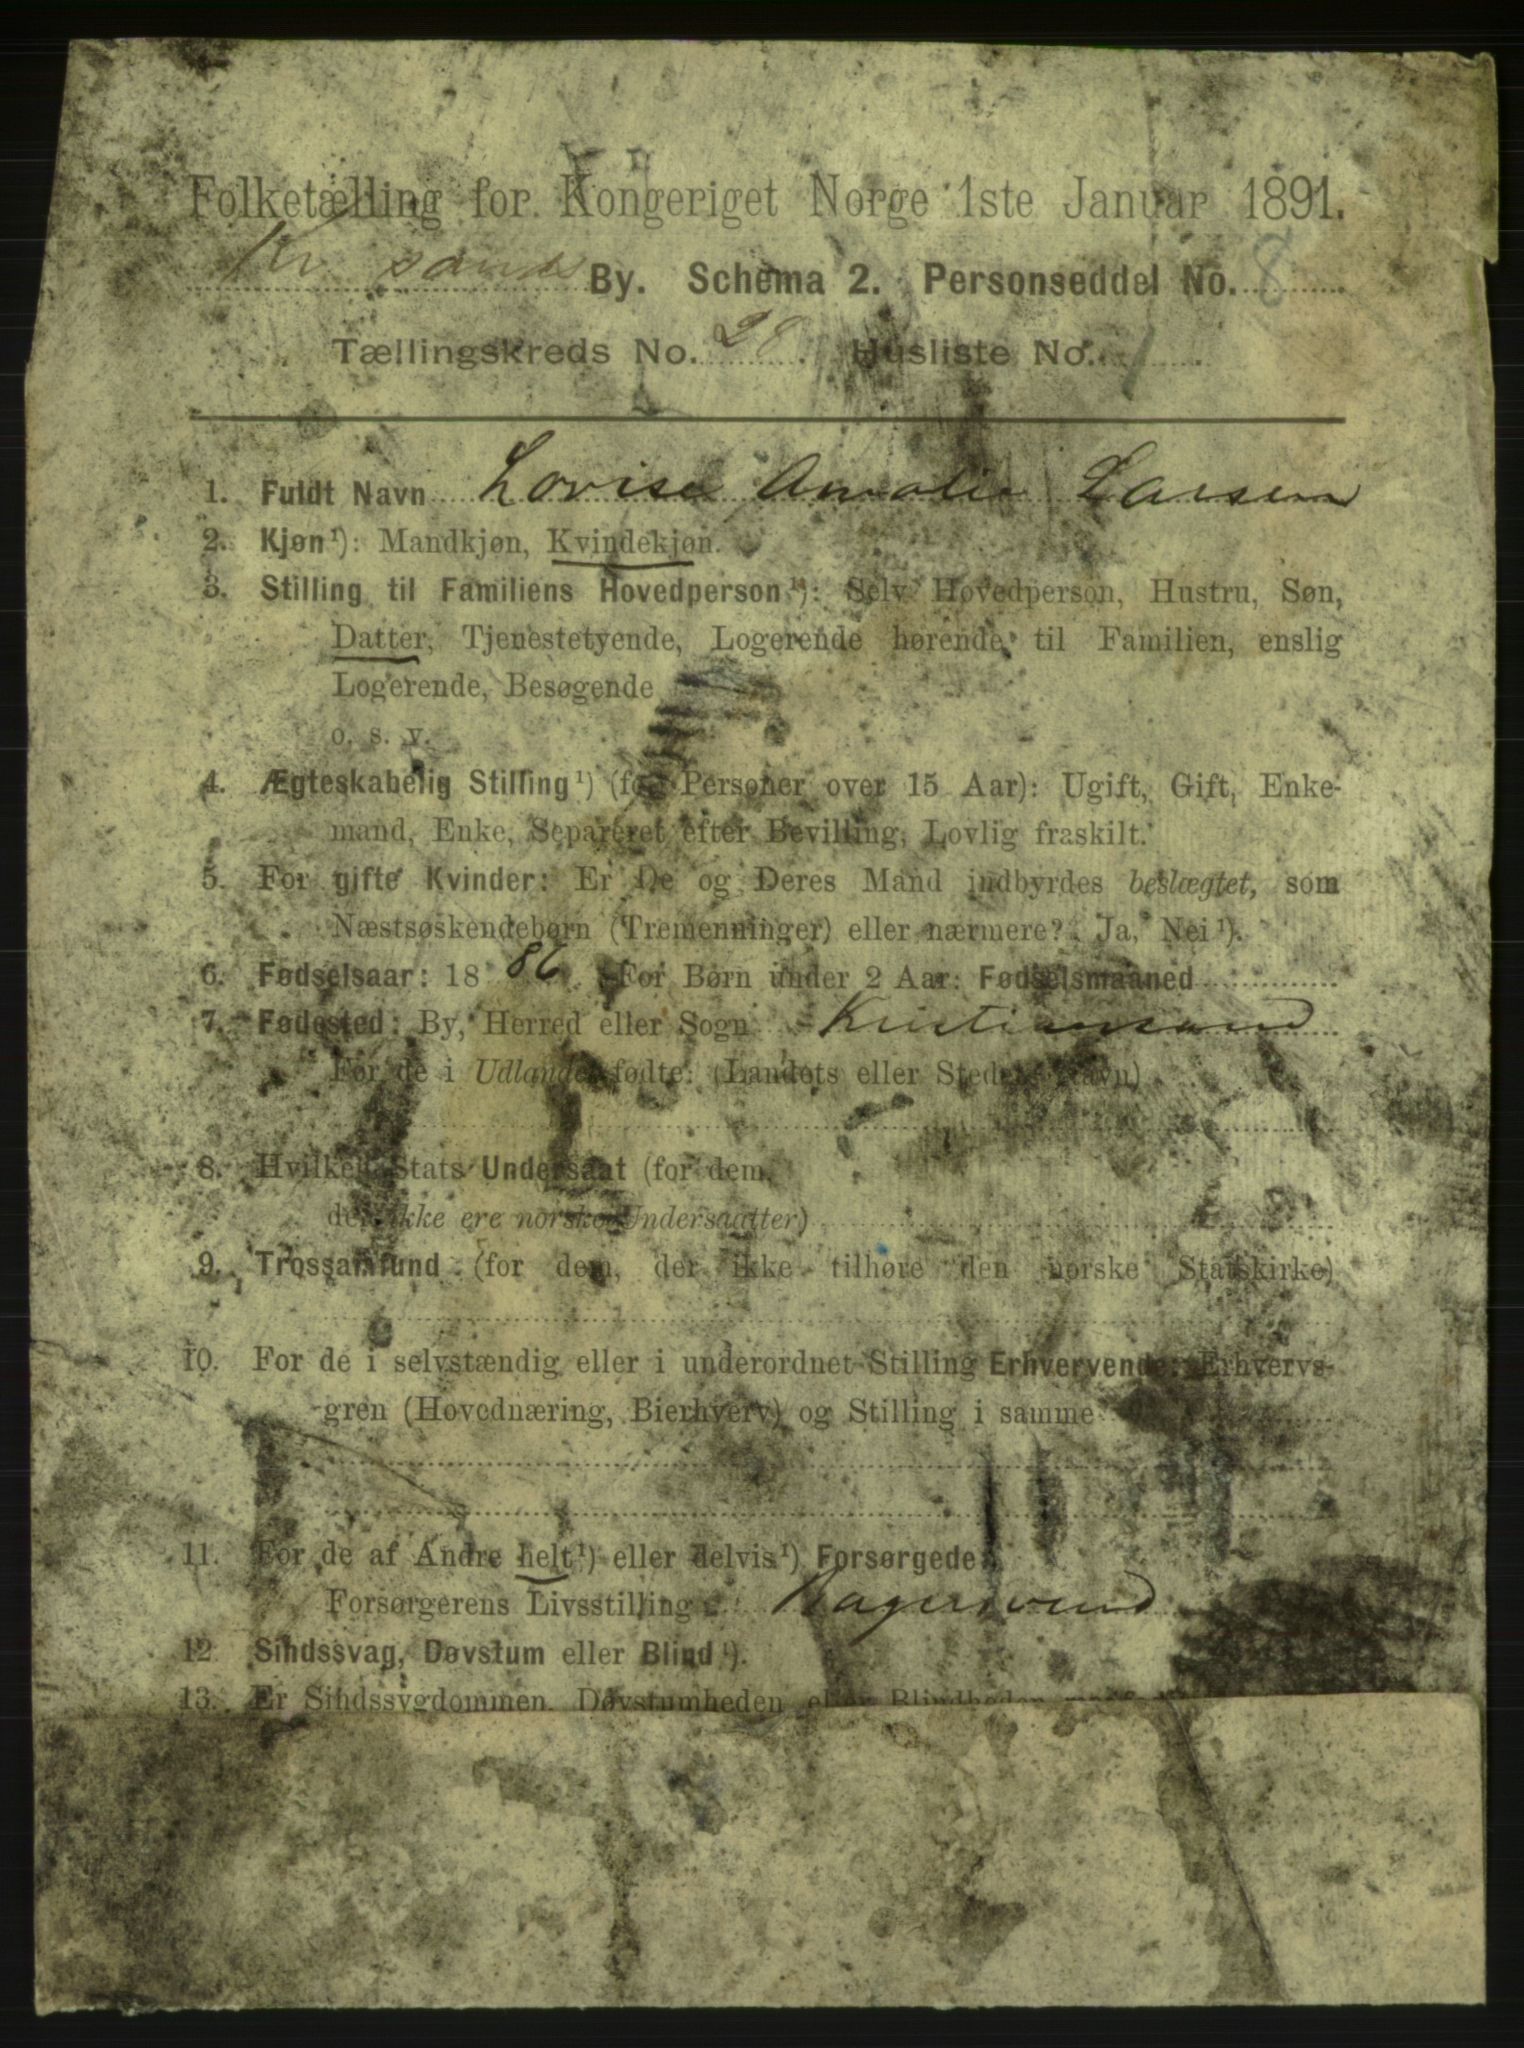 Folketælling for Kongeriget Norge 1ste Januar 1891.
Kr sands By. Schema 2. Personseddel No. 8
Tællingskreds No. 28. Husliste No. 1
1. Fuldt Navn Lovise Amalie Larsen
2. Kjøn¹): Mandkjøn, Kvindekjøn.
3. Stilling til Familiens Hovedperson¹): Selv Hovedperson, Hustru, Søn,
Datter, Tjenestetyende, Logerende hørende til Familien, enslig
Logerende, Besøgende
o. s. v.
4. Ægteskabelig Stilling¹) (for Personer over 15 Aar): Ugift, Gift, Enke-
mand, Enke, Separeret efter Bevilling, Lovlig fraskilt.
5. For gifte Kvinder: Er De og Deres Mand indbyrdes beslægtet, som
Næstsøskendebørn (Tremenninger) eller nærmere? Ja, Nei¹).
6. Fødselsaar: 1886. For Børn under 2 Aar: Fødselsmaaned
7. Fødested: By, Herred eller Sogn Kristiansand
For de i Udlandet fødte: (Landets eller Stedets Navn)
8. Hvilken Stats Undersaat (for dem,
der ikke ere norske Undersaatter)
9. Trossamfund (for dem, der ikke tilhøre den norske Statskirke)
10. For de i selvstændig eller i underordnet Stilling Erhvervende: Erhvervs-
gren (Hovednæring, Bierhverv) og Stilling i samme
11. For de af Andre helt¹) eller delvis¹) Forsørgede:
Forsørgerens Livsstilling Bagersvend
12. Sindssvag, Døvstum eller Blind¹).
13. Er Sindssygdommen, Døvstumheden eller Blindheden